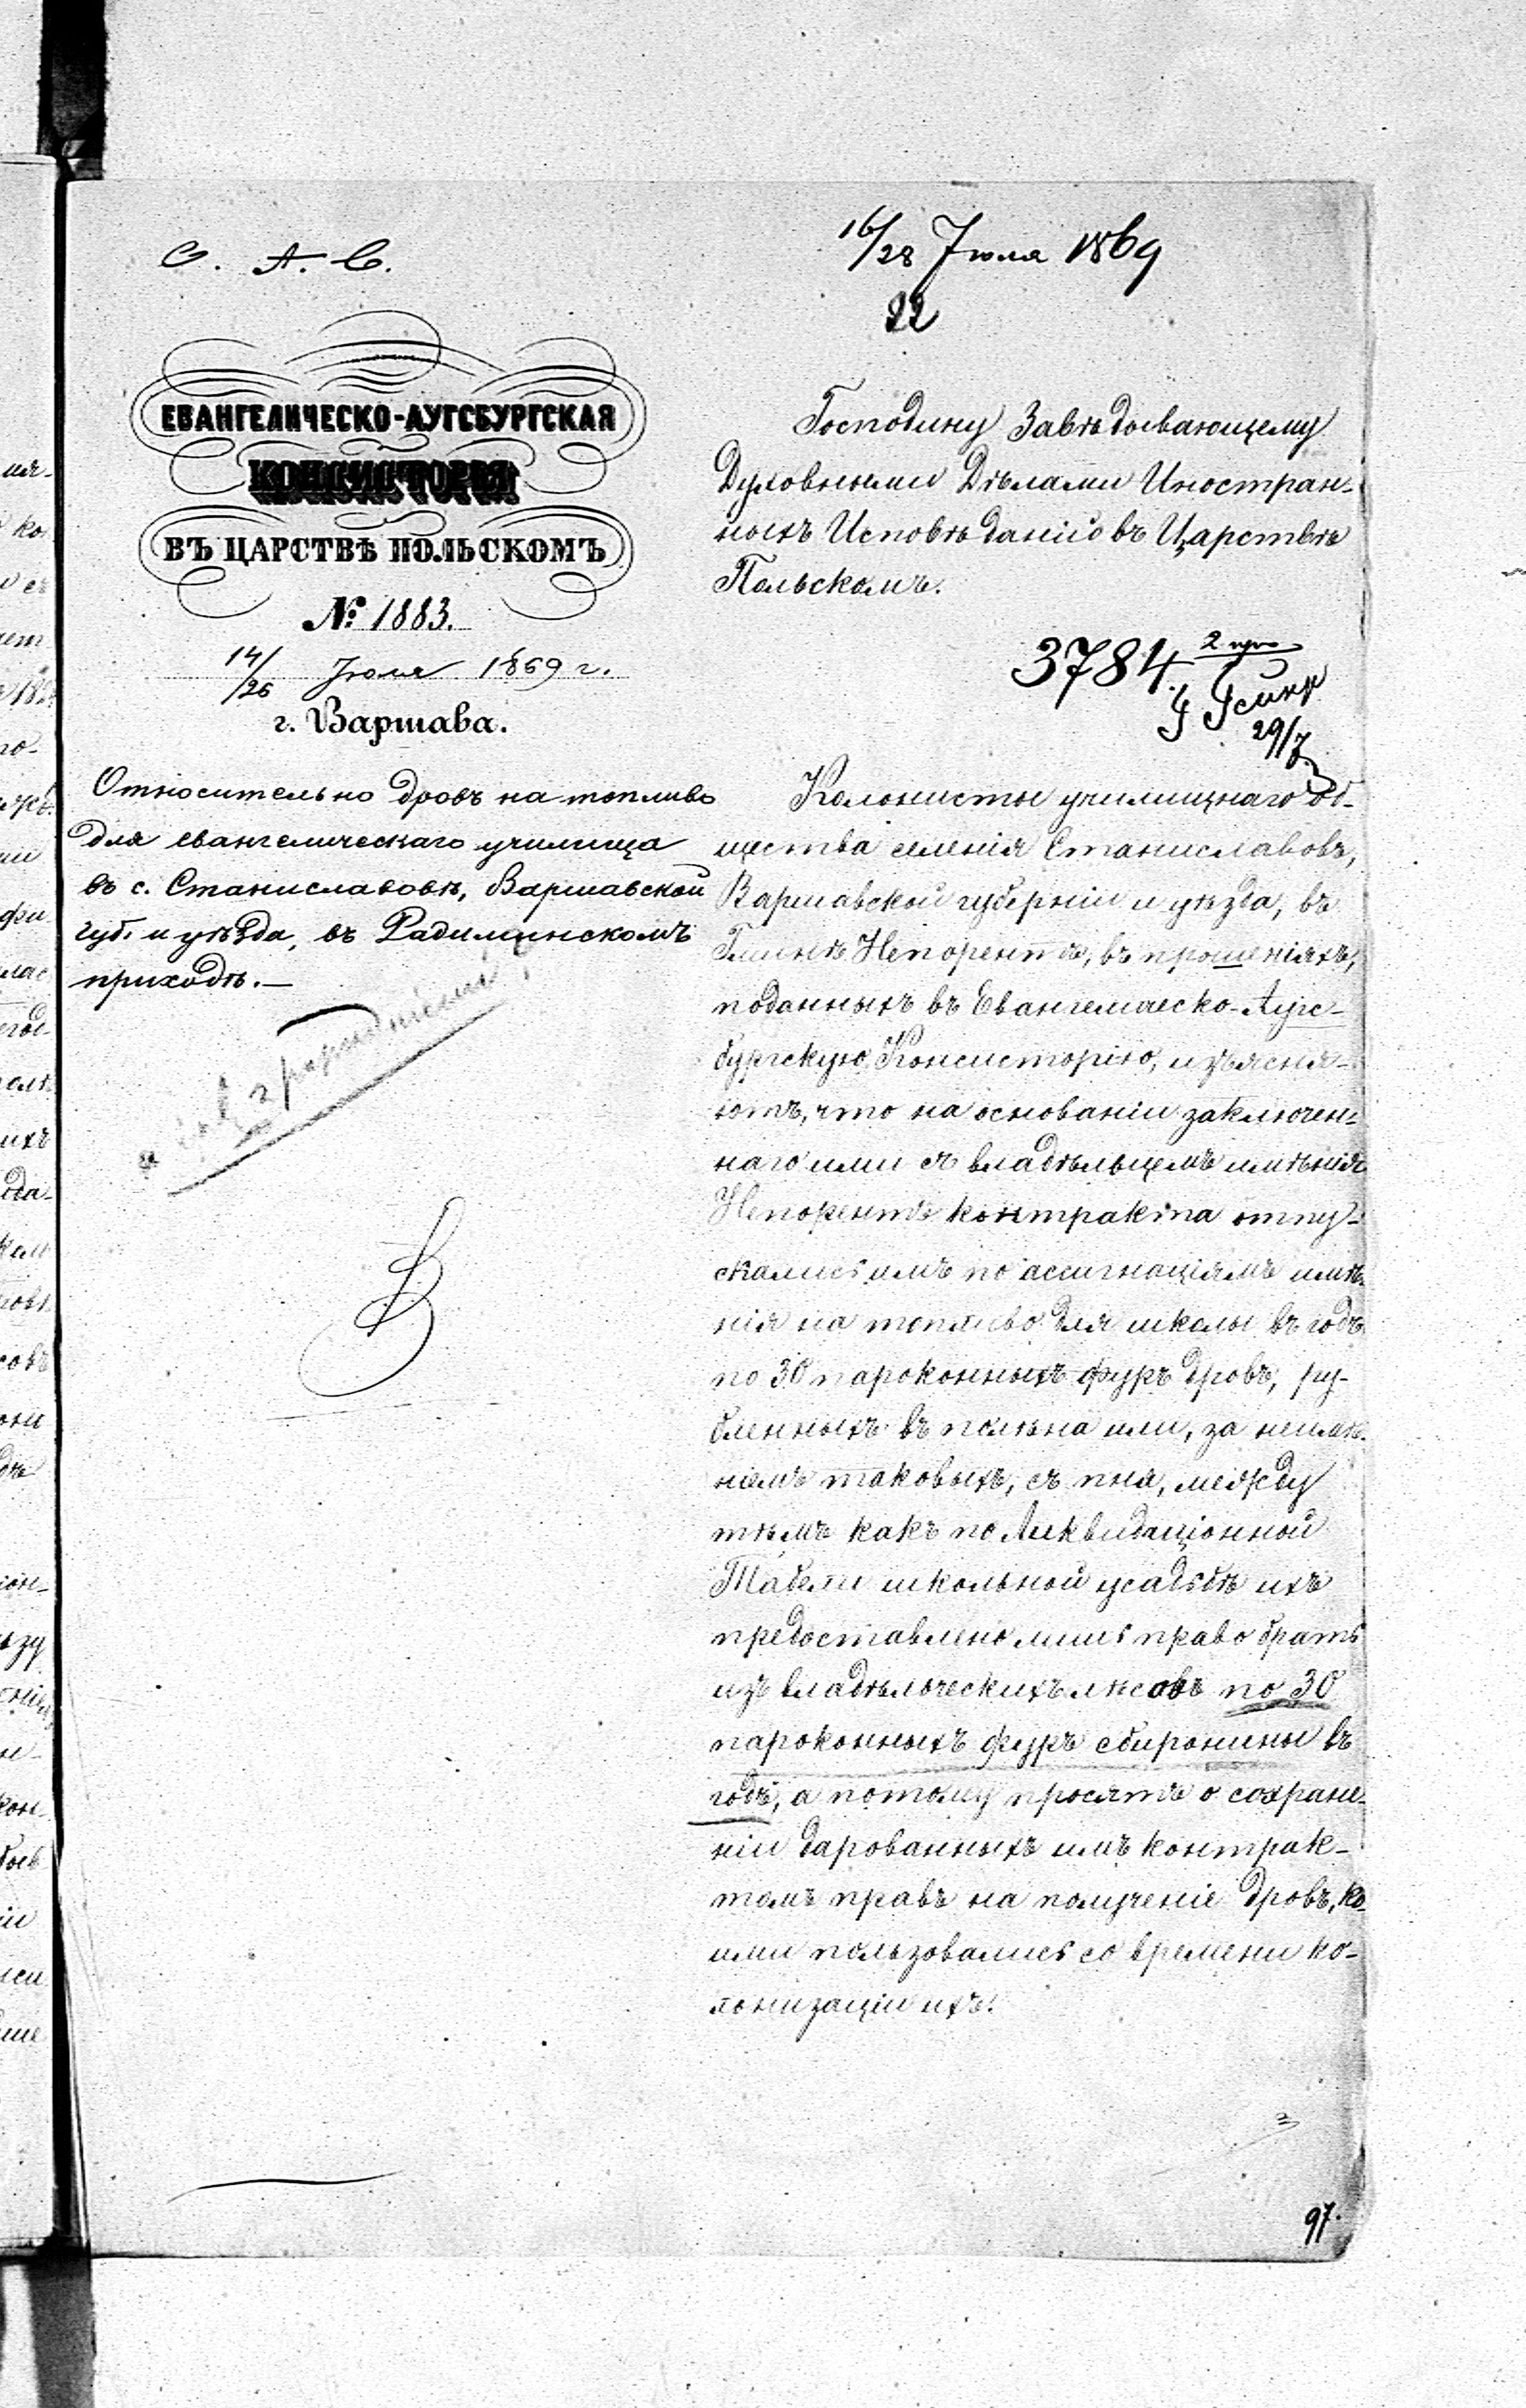 С. А. С.
ЕВАНГЕЛИЧЕСКО-АУГСБУРГСКАЯ
КОНСИСТОРІЯ
ВЪ ЦАРСТВѢ ПОЛЬСКОМЪ
№ 1883.
14/26 Іюля 1869 г.
г. Варшава.
Относительно дровъ на топливо
для евангелическаго училища
въ с. Станиславовѣ, Варшавской
губ. и уѣзда, въ Радиминскомъ
приходѣ.—
16/28 Іюля 1869
22
Господину Завѣдывающему
Духовными Дѣлами Иностран-
ныхъ Исповѣданій въ Царствѣ
Польскомъ.
3784.
29/7
Колонисты училищнаго об-
щества селенія Станиславовъ,
Варшавской губерніи и уѣзда, въ
Гминѣ Непорентъ, въ прошеніяхъ,
поданныхъ въ Евангелическо-Аугс-
бургскую Консисторію, изъясня-
ютъ, что на основаніи заключен-
наго ими съ владѣльцемъ имѣнія
Непорентъ контракта отпу-
скались имъ по ассигнаціямъ имѣ-
нія на топливо для школы въ годъ
по 30 пароконныхъ фуръ дровъ, ру-
бленныхъ въ полѣна или, за неимѣ-
ніемъ таковыхъ, съ пня, между
тѣмъ какъ по Ликвидаціонной
Табели школьной усадьбѣ ихъ
предоставлено лишь право брать
изъ владѣльческихъ лѣсовъ по 30
пароконныхъ фуръ збиранины въ
годъ, а потому просятъ о сохране-
ніи дарованныхъ имъ контрак-
томъ правъ на полученіе дровъ, ко-
ими пользовались со времени ко-
лонизаціи ихъ.
97.